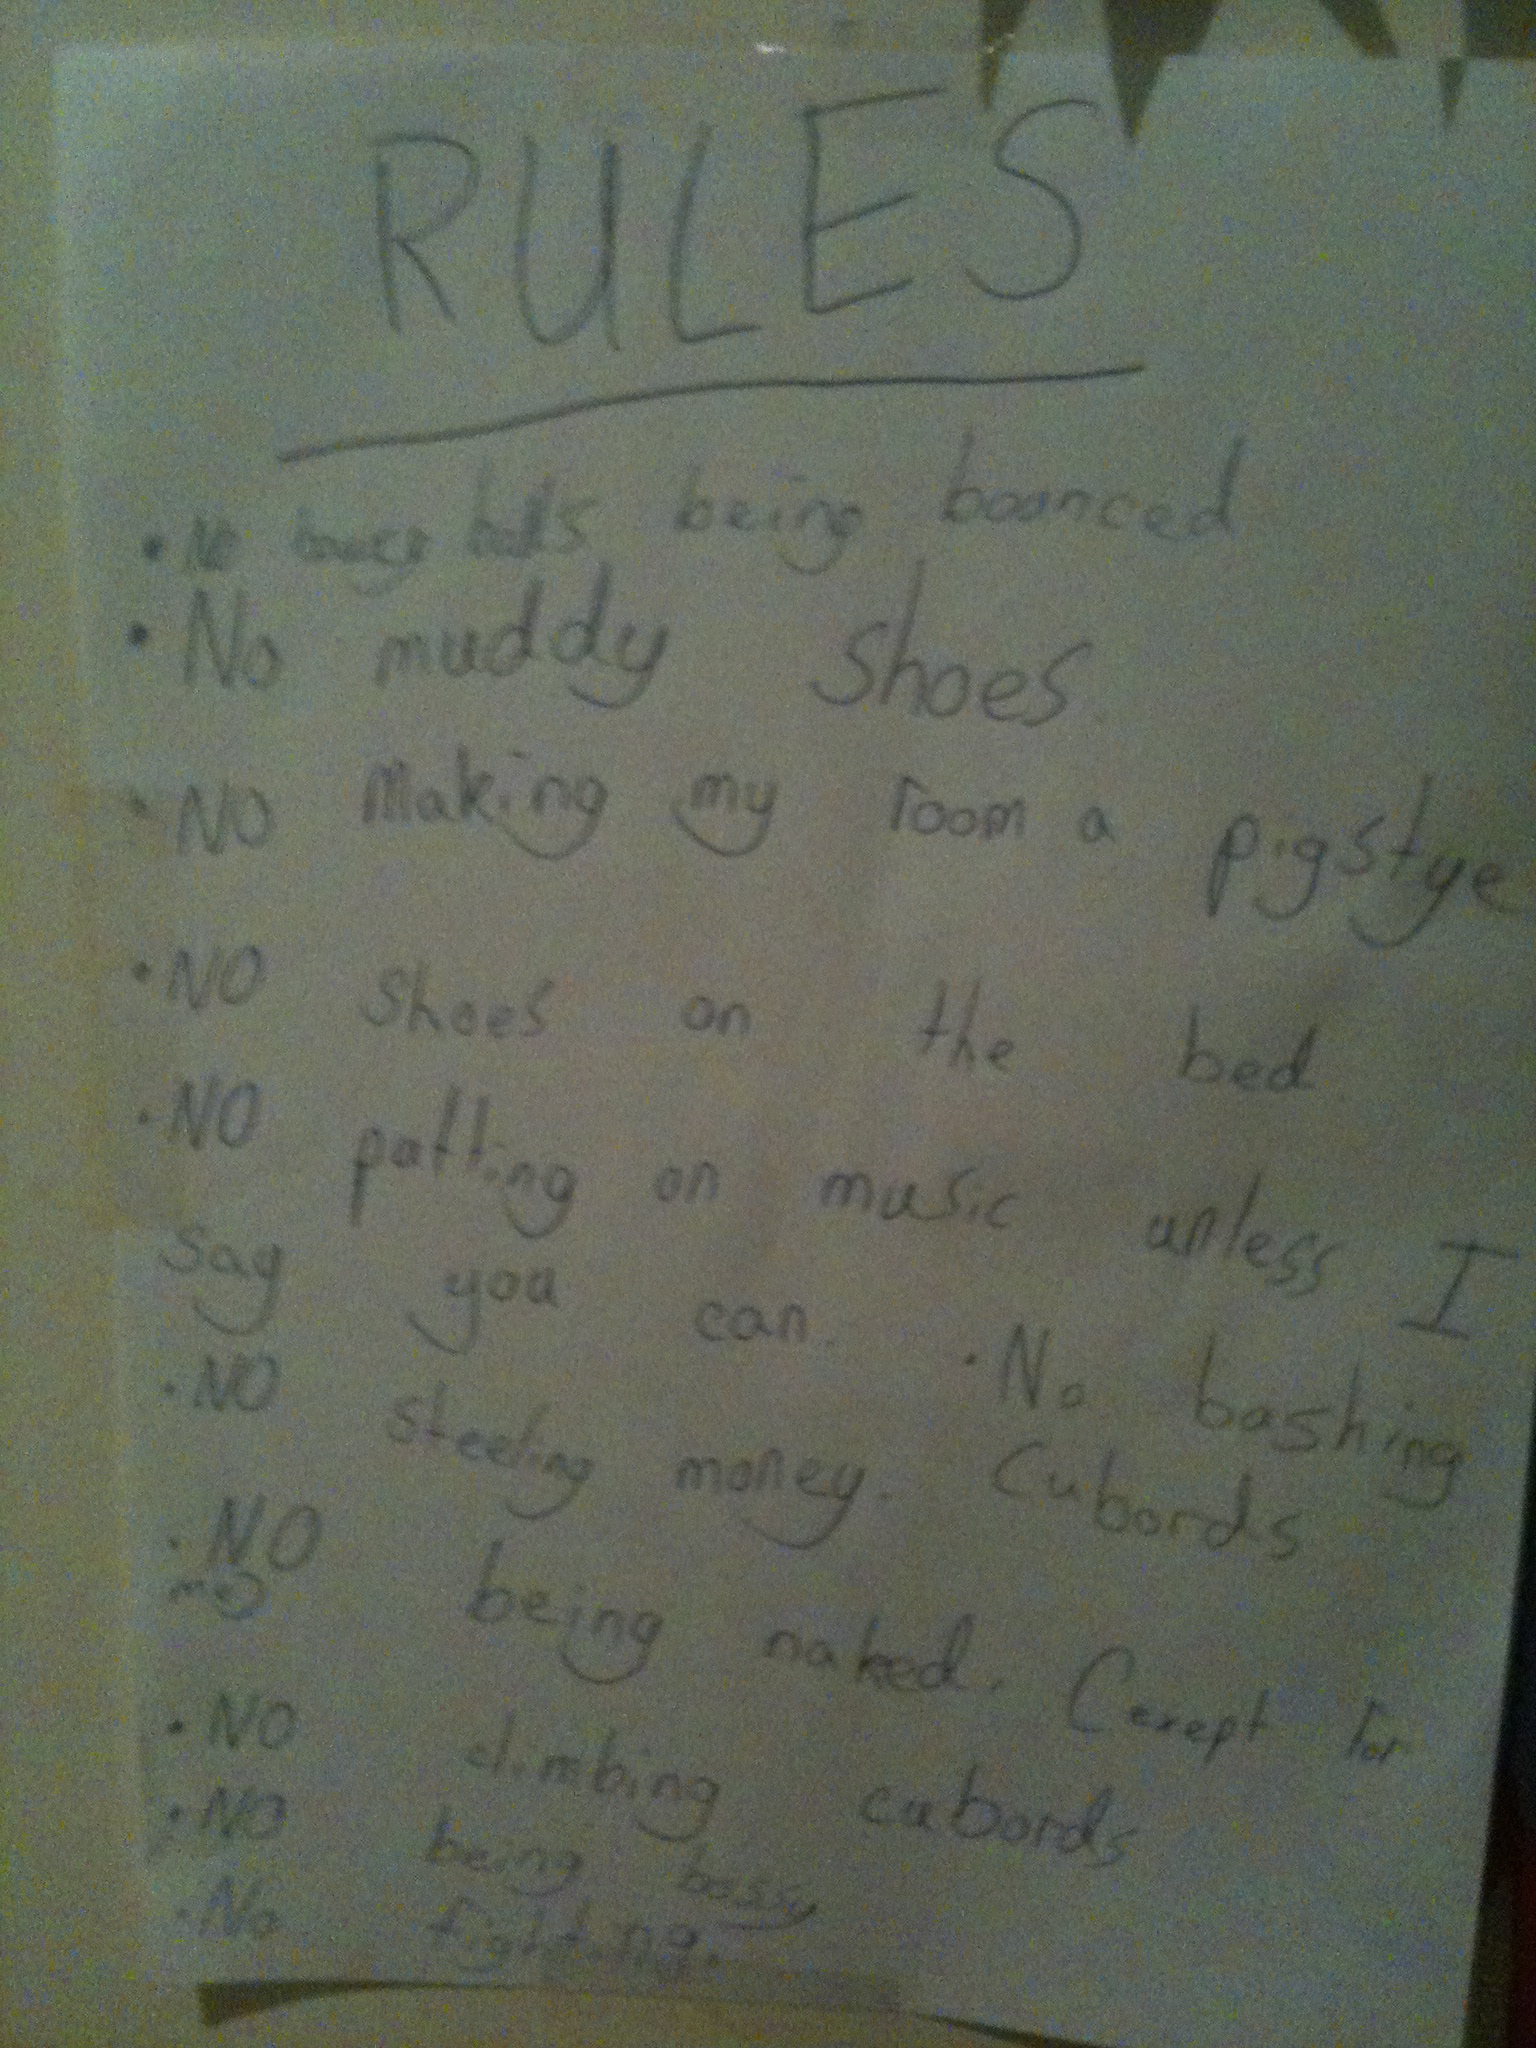 RULES
• No bouncy balls being bounced
• No muddy shoes.
• NO Making my room a pigstye
• NO shoes on the bed
• NO putting on music unless I
say you can. • No bashing
• NO steeling money. Cubords
• NO being naked. (exept for
me)
• NO climbing cubords
• NO being bossy
• No fighting.